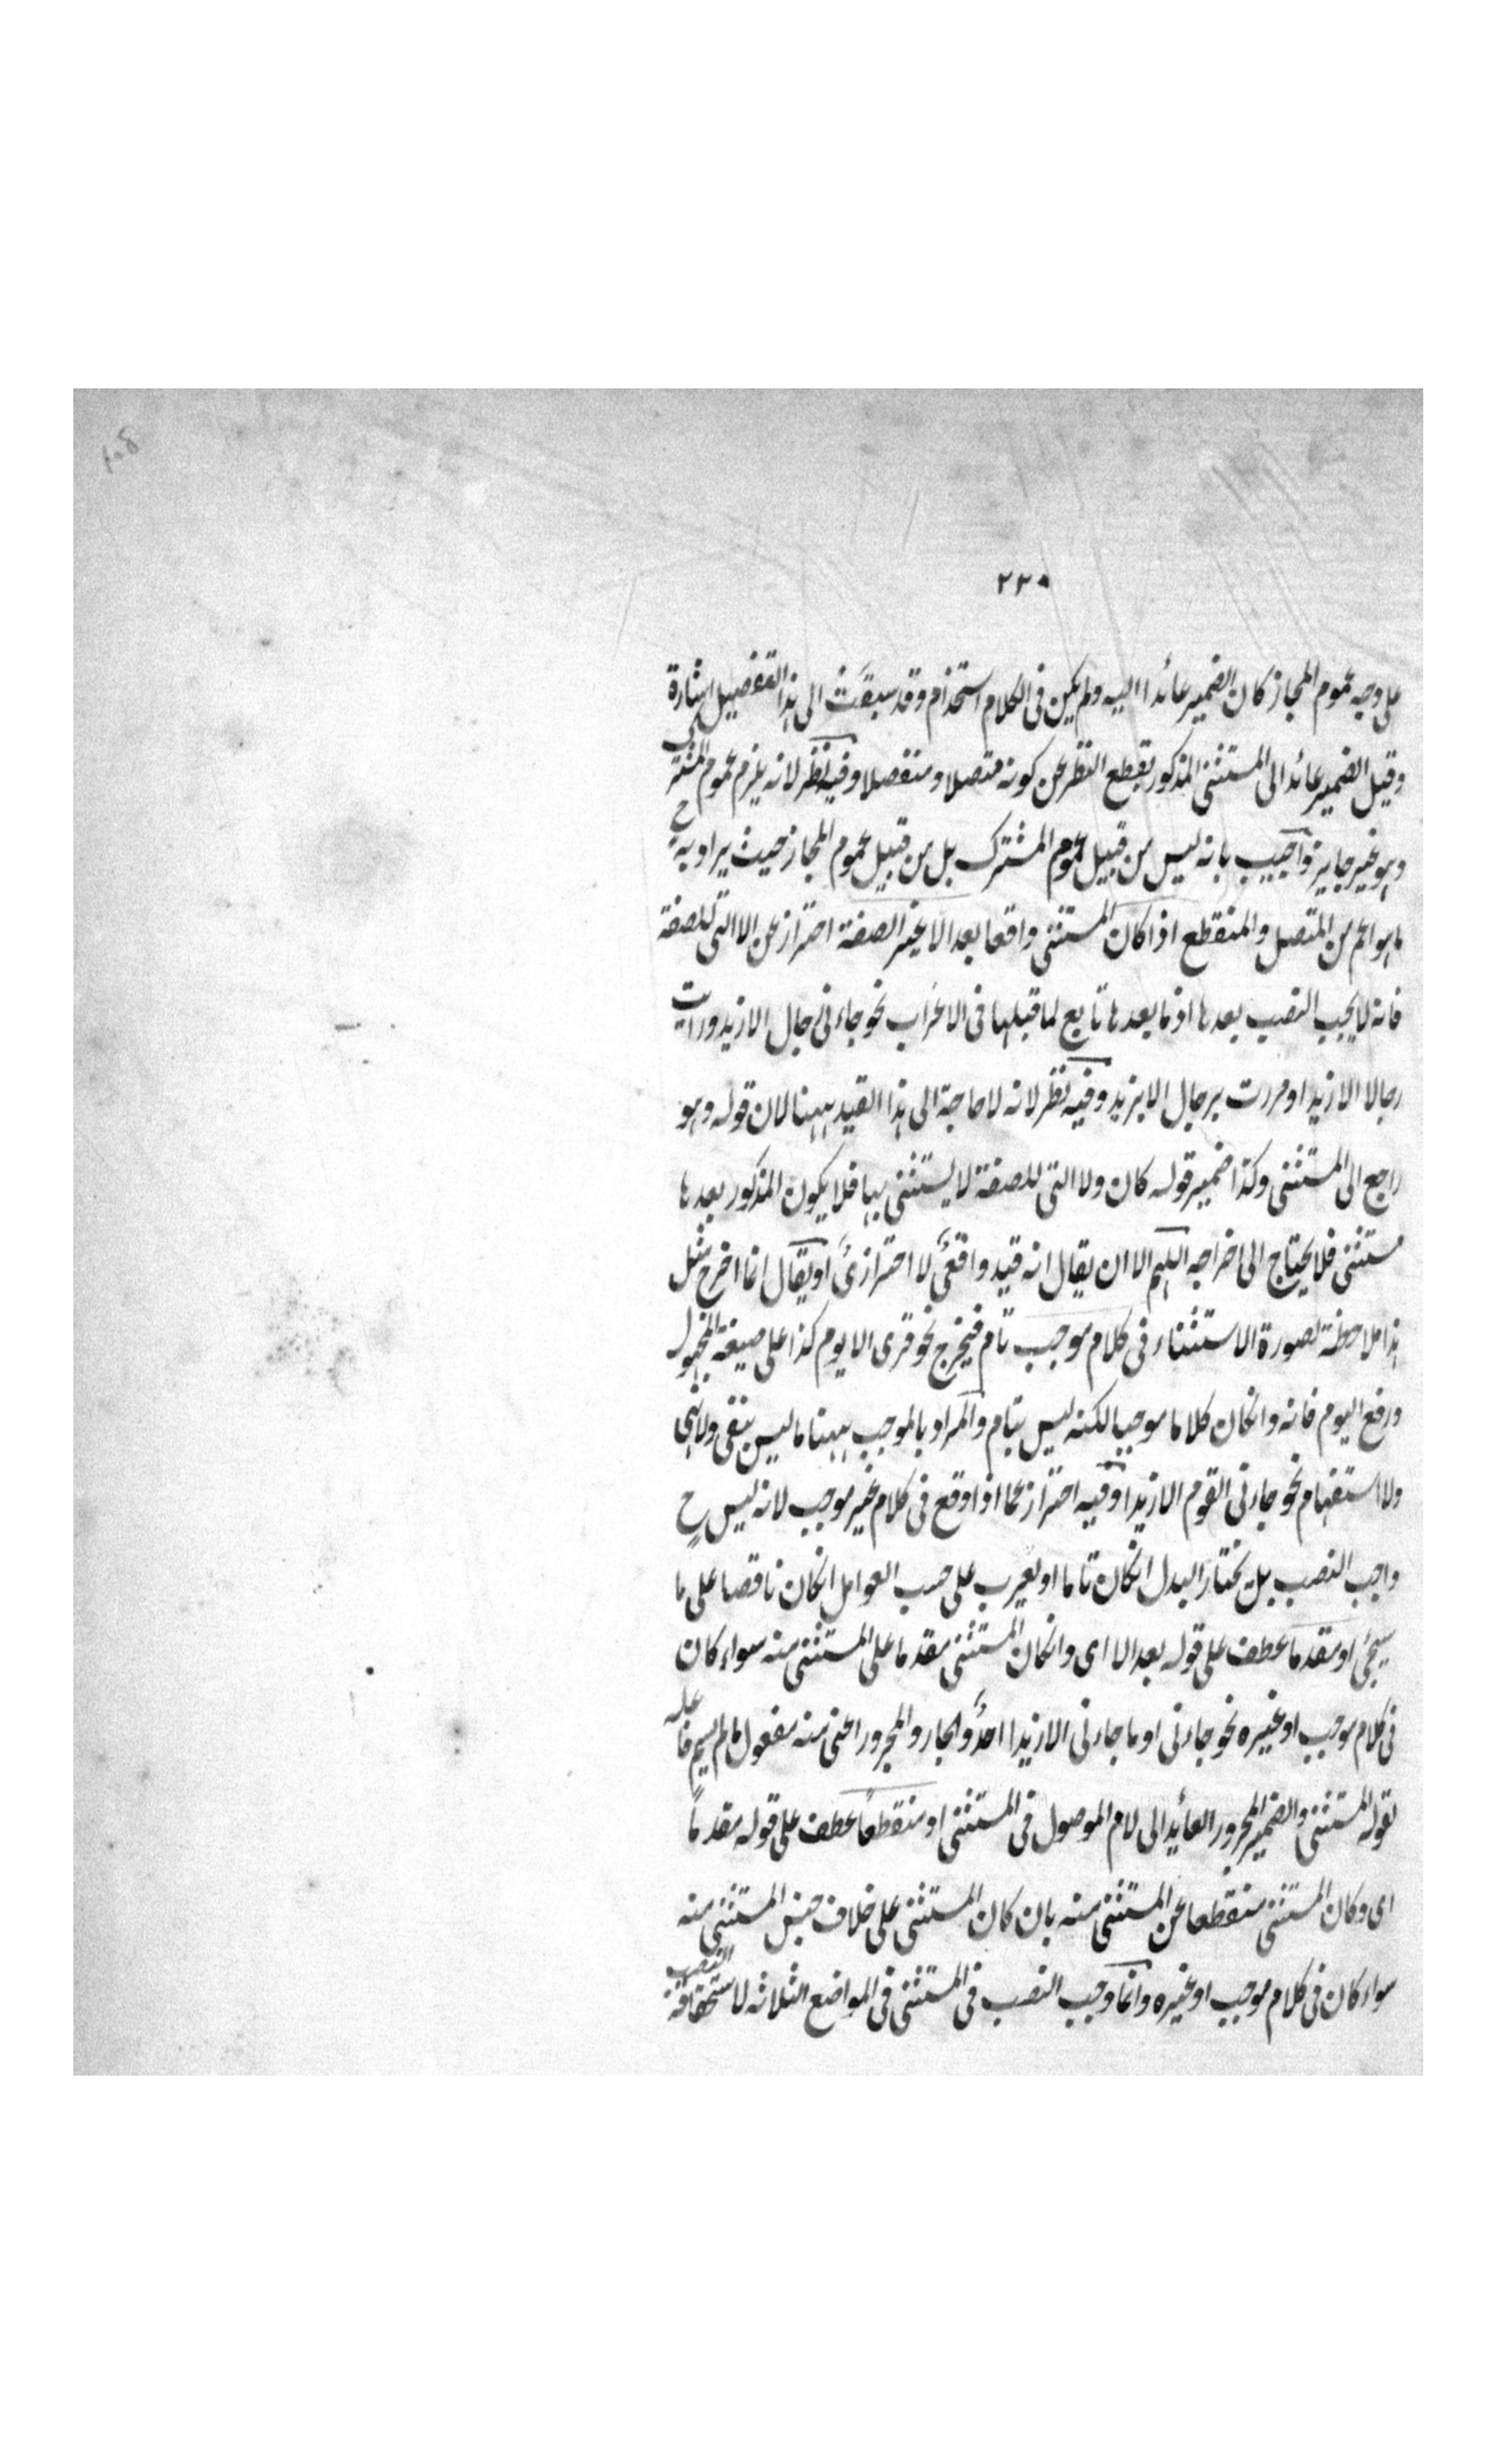 ٢٣٠
على وجه عموم المجاز كان الضمير عائدا اليه ولم يكن فى الكلام استخدام وقد سبقت الى هذا التفصيل اشارة
وقيل الضمير عائد الى المستثنى المذكور بقطع النظر عن كونه متصلا ومنفصلا وفيه نظر لانه يلزم عموم المشترك
وهو غير جايز واجيب بانه ليس من قبيل عموم المشترك بل من قبيل عموم المجاز حيث يراد به ح
ما هو اعم من المتصل والمنقطع اذا كان المستثنى واقعا بعد الا غير الصفة احتراز عن الا التى للصفة
فانه لا يجب النصب بعدها اذ ما بعدها تابع لما قبلها فى الاعراب نحو جاءنى رجال الا زيد ورايت
رجالا الا زيدا ومررت برجال الا بزيد وفيه نظر لانه لا حاجة الى هذا القيد ههنا لان قوله وهو
راجع الى المستثنى وكذا ضمير قوله كان ولا التى للصفة لا يستثنى بها فلا يكون المذكور بعدها
مستثنى فلا يحتاج الى اخراجه اللهم الا ان يقال انه قيد واقعى لا احترازى او يقال انما اخرج مثل
هذا ملاحظة لصورة الاستثناء فى كلام موجب تام فيخرج نحو قرئ الا يوم كذا على صيغة المجهول
ورفع اليوم فانه وانكان كلاما موجبا لكنه ليس بتام والمراد بالموجب ههنا ما ليس بنفى ولا نهى
ولا استفهام نحو جاءنى القوم الا زيدا وفيه احتراز عما اذا وقع فى كلام غير موجب لانه ليس ح
واجب النصب بل يختار البدل انكان تاما او يعرب على حسب العوامل انكان ناقصا على ما
سيجئ او مقدما عطف على قوله بعد الا اى وانكان المستثنى مقدما على المستثنى منه سواء كان
فى كلام موجب او غيره نحو جاءنى او ما جاءنى الا زيدا احد والجار والمجرور اعنى منه مفعول ما لم يسم فاعله
لقوله المستثنى والضمير المجرور العائد الى لام الموصول فى المستثنى او منقطعا عطف على قوله مقدما
اى وكان المستثنى منقطعا عن المستثنى منه بان كان المستثنى على خلاف جنس المستثنى منه
سواء كان فى كلام موجب او غيره وانما وجب النصب فى المستثنى فى المواضع الثلاثه لاستحقاقه النصب